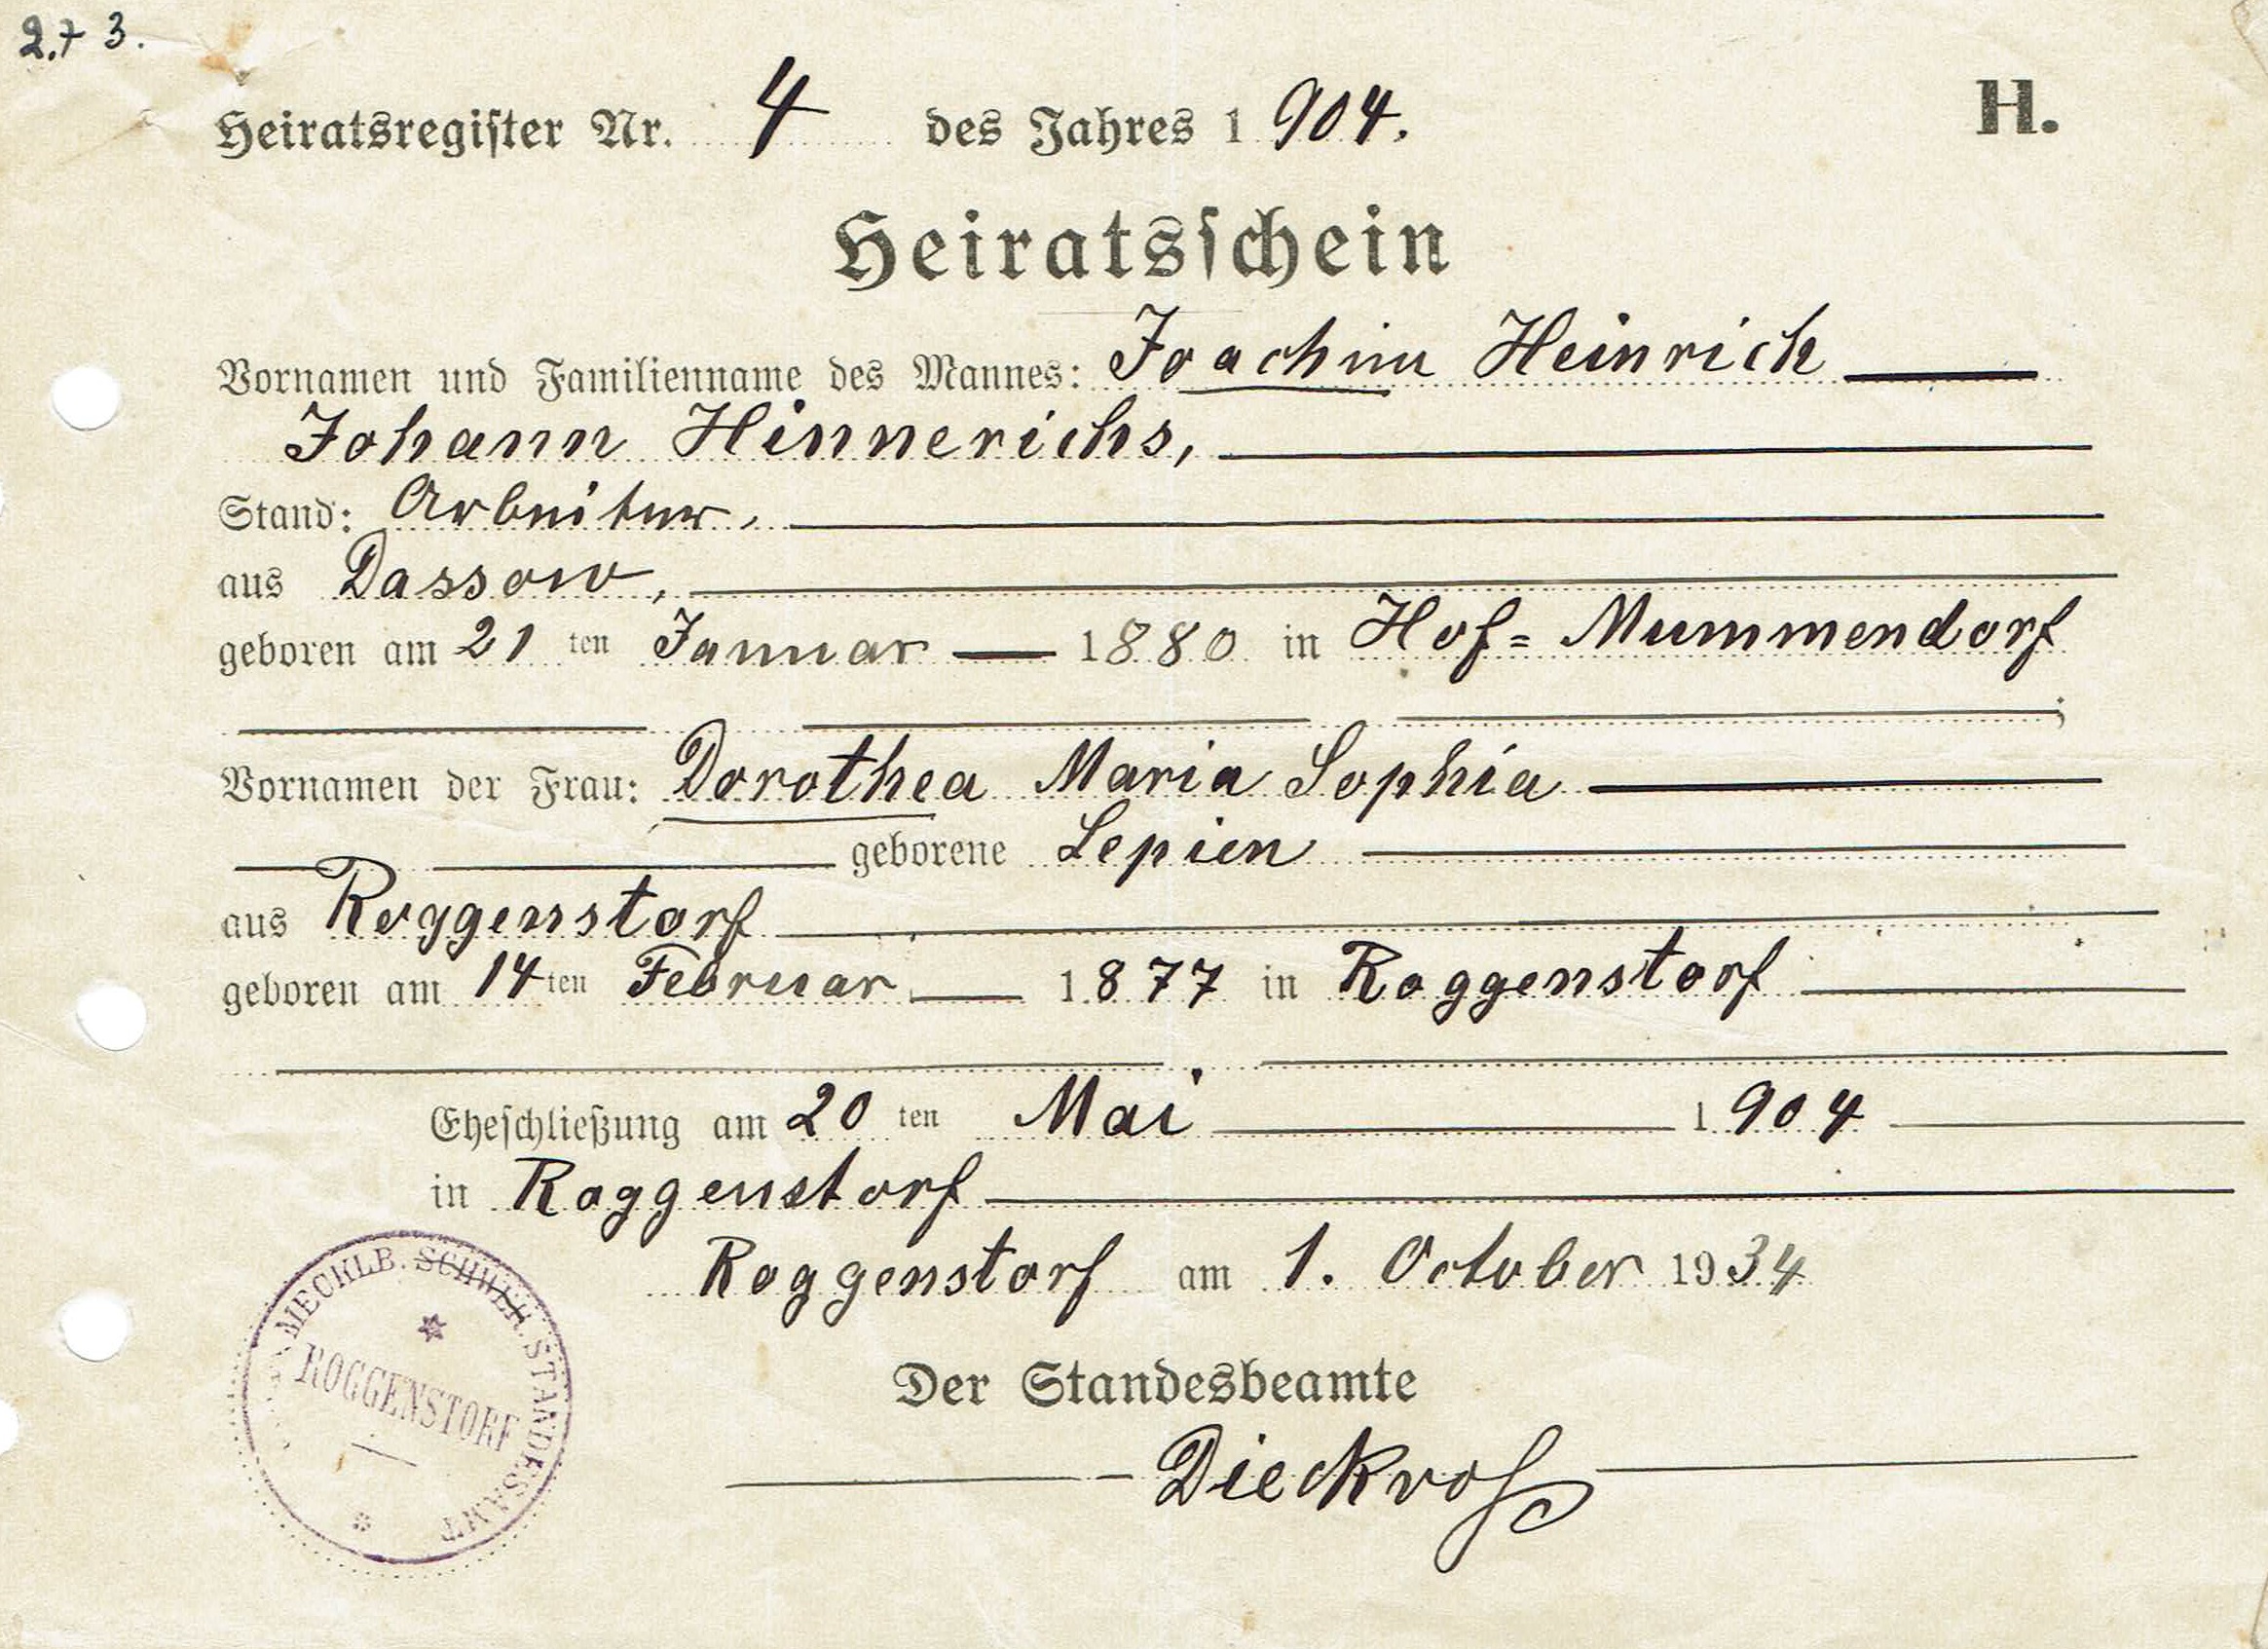 2.+ 3.
Heiratsregister Nr. 4 des Jahres 1904.
H.
Heiratsschein
Vornamen und Familienname des Mannes: Joachim Heinrich
Johann Hinnerichs,
Stand: Arbeiter,
aus Dassow,
geboren am 21 ten Januar 1880 in Hof= Mummendorf
;
Vornamen der Frau: Dorothea Maria Sophia
geborene Lepien
aus Roggenstorf
geboren am 14ten Februar 1877 in Roggenstorf
Eheschließung am 20 ten Mai 1904
in Roggenstorf
Roggenstorf am 1. October 1934
MECKLB. SCHWER. STANDESAMT
ROGGENSTORF
Der Standesbeamte